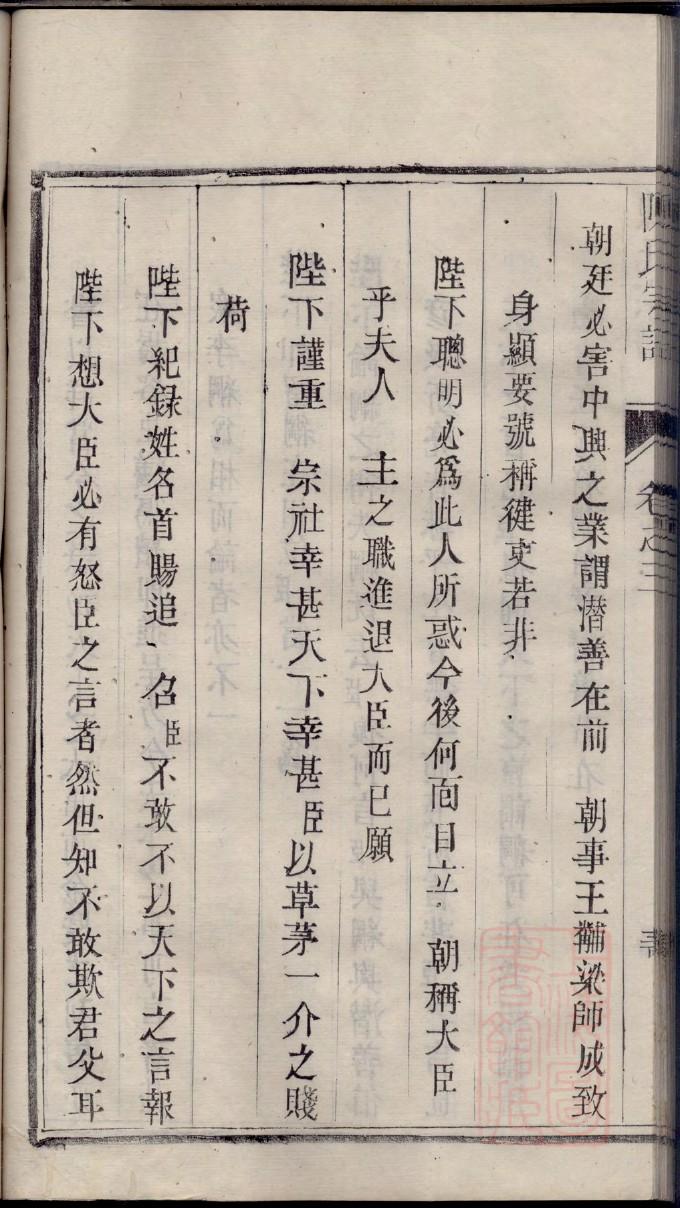 陳氏宗譜 卷之三
朝廷必害中興之業謂潛善在前 朝事王黼梁師成致
身顯要號稱健吏若非
陛下聰明必爲此人所惑今後何面目立 朝稱大臣
乎夫人 主之職進退大臣而已願
陛下謹重 宗社幸甚天下幸甚臣以草茅一介之賤
荷
陛下紀錄姓名首賜追 召臣不敢不以天下之言報
陛下想大臣必有怒臣之言者然但知不敢欺君父耳